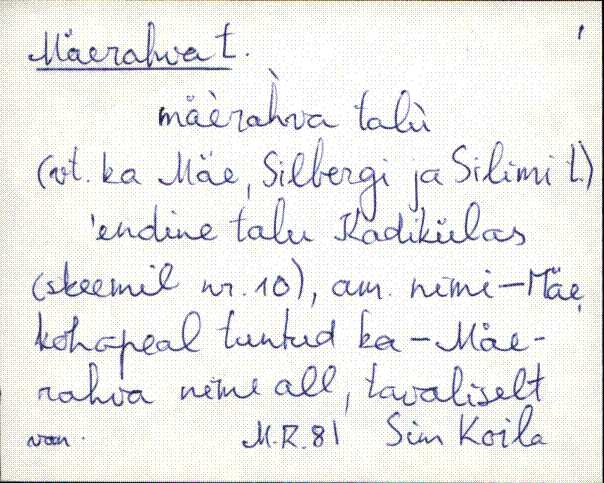 Mäerahva t. 1
mäèràhva talù
(vt. ka Mäe, Silbergi ja Silimi t.)
'endine talu Kadikülas
(skeemil nr. 10), am. nimi – Mäe,
kohapeal tuntud ka – Mäe-
rahva nime all, tavaliselt
van. M.R. 81 Sim Koila